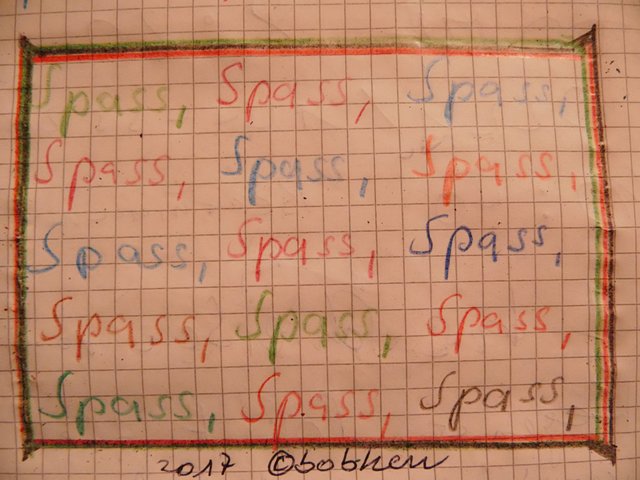 Spass, Spass, Spass,
Spass, Spass, Spass,
Spass, Spass, Spass,
Spass, Spass, Spass,
Spass, Spass, Spass,
2017 ©bobken